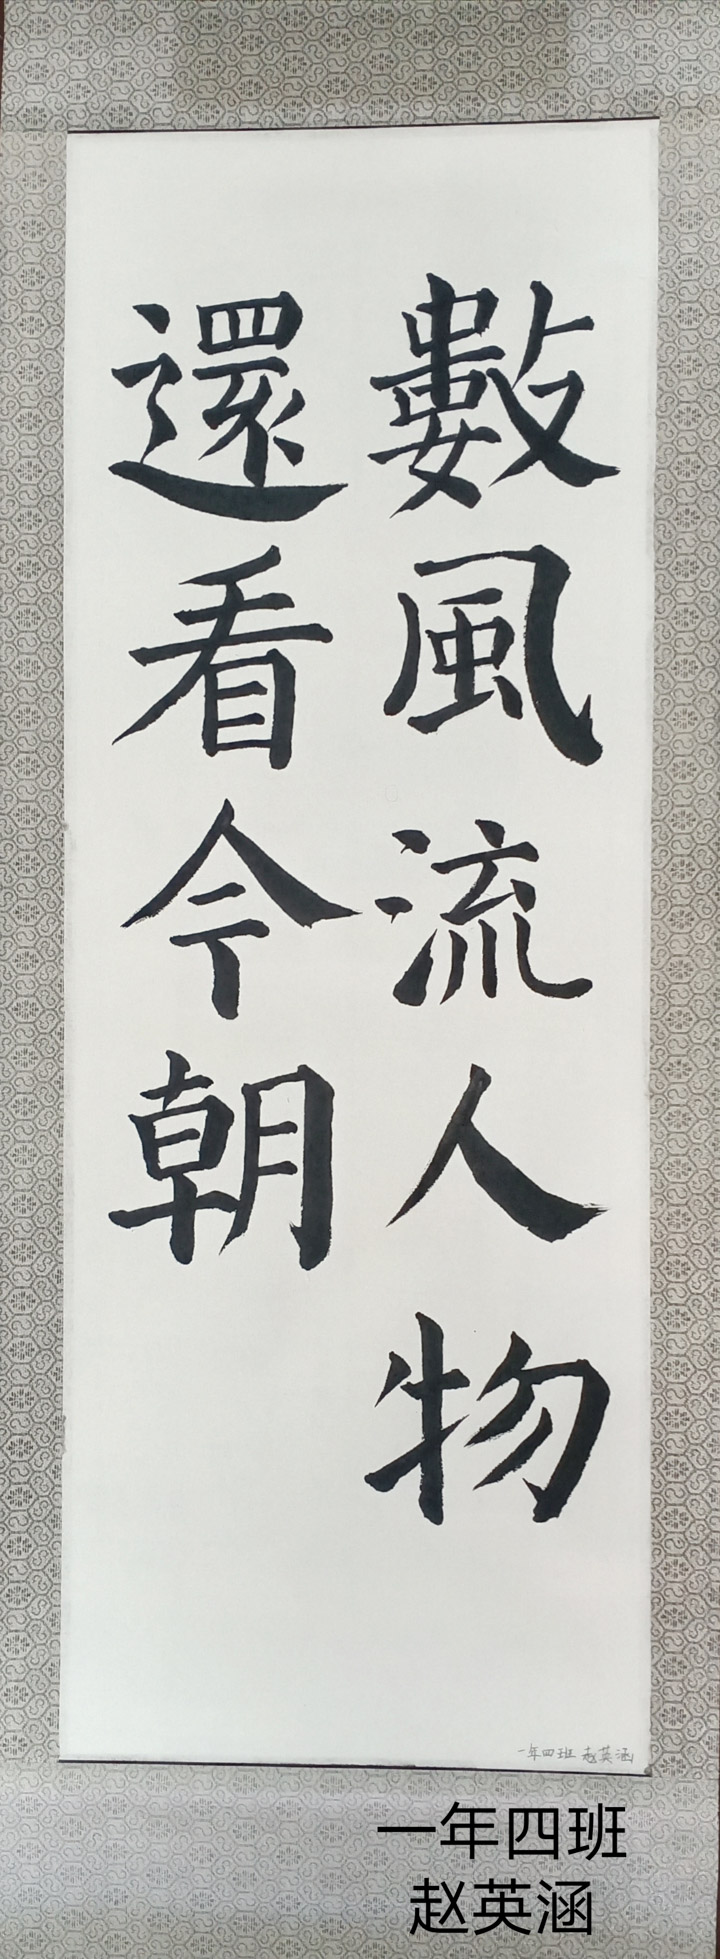 數風流人物
還看今朝
一年四班 赵英涵
一年四班
赵英涵